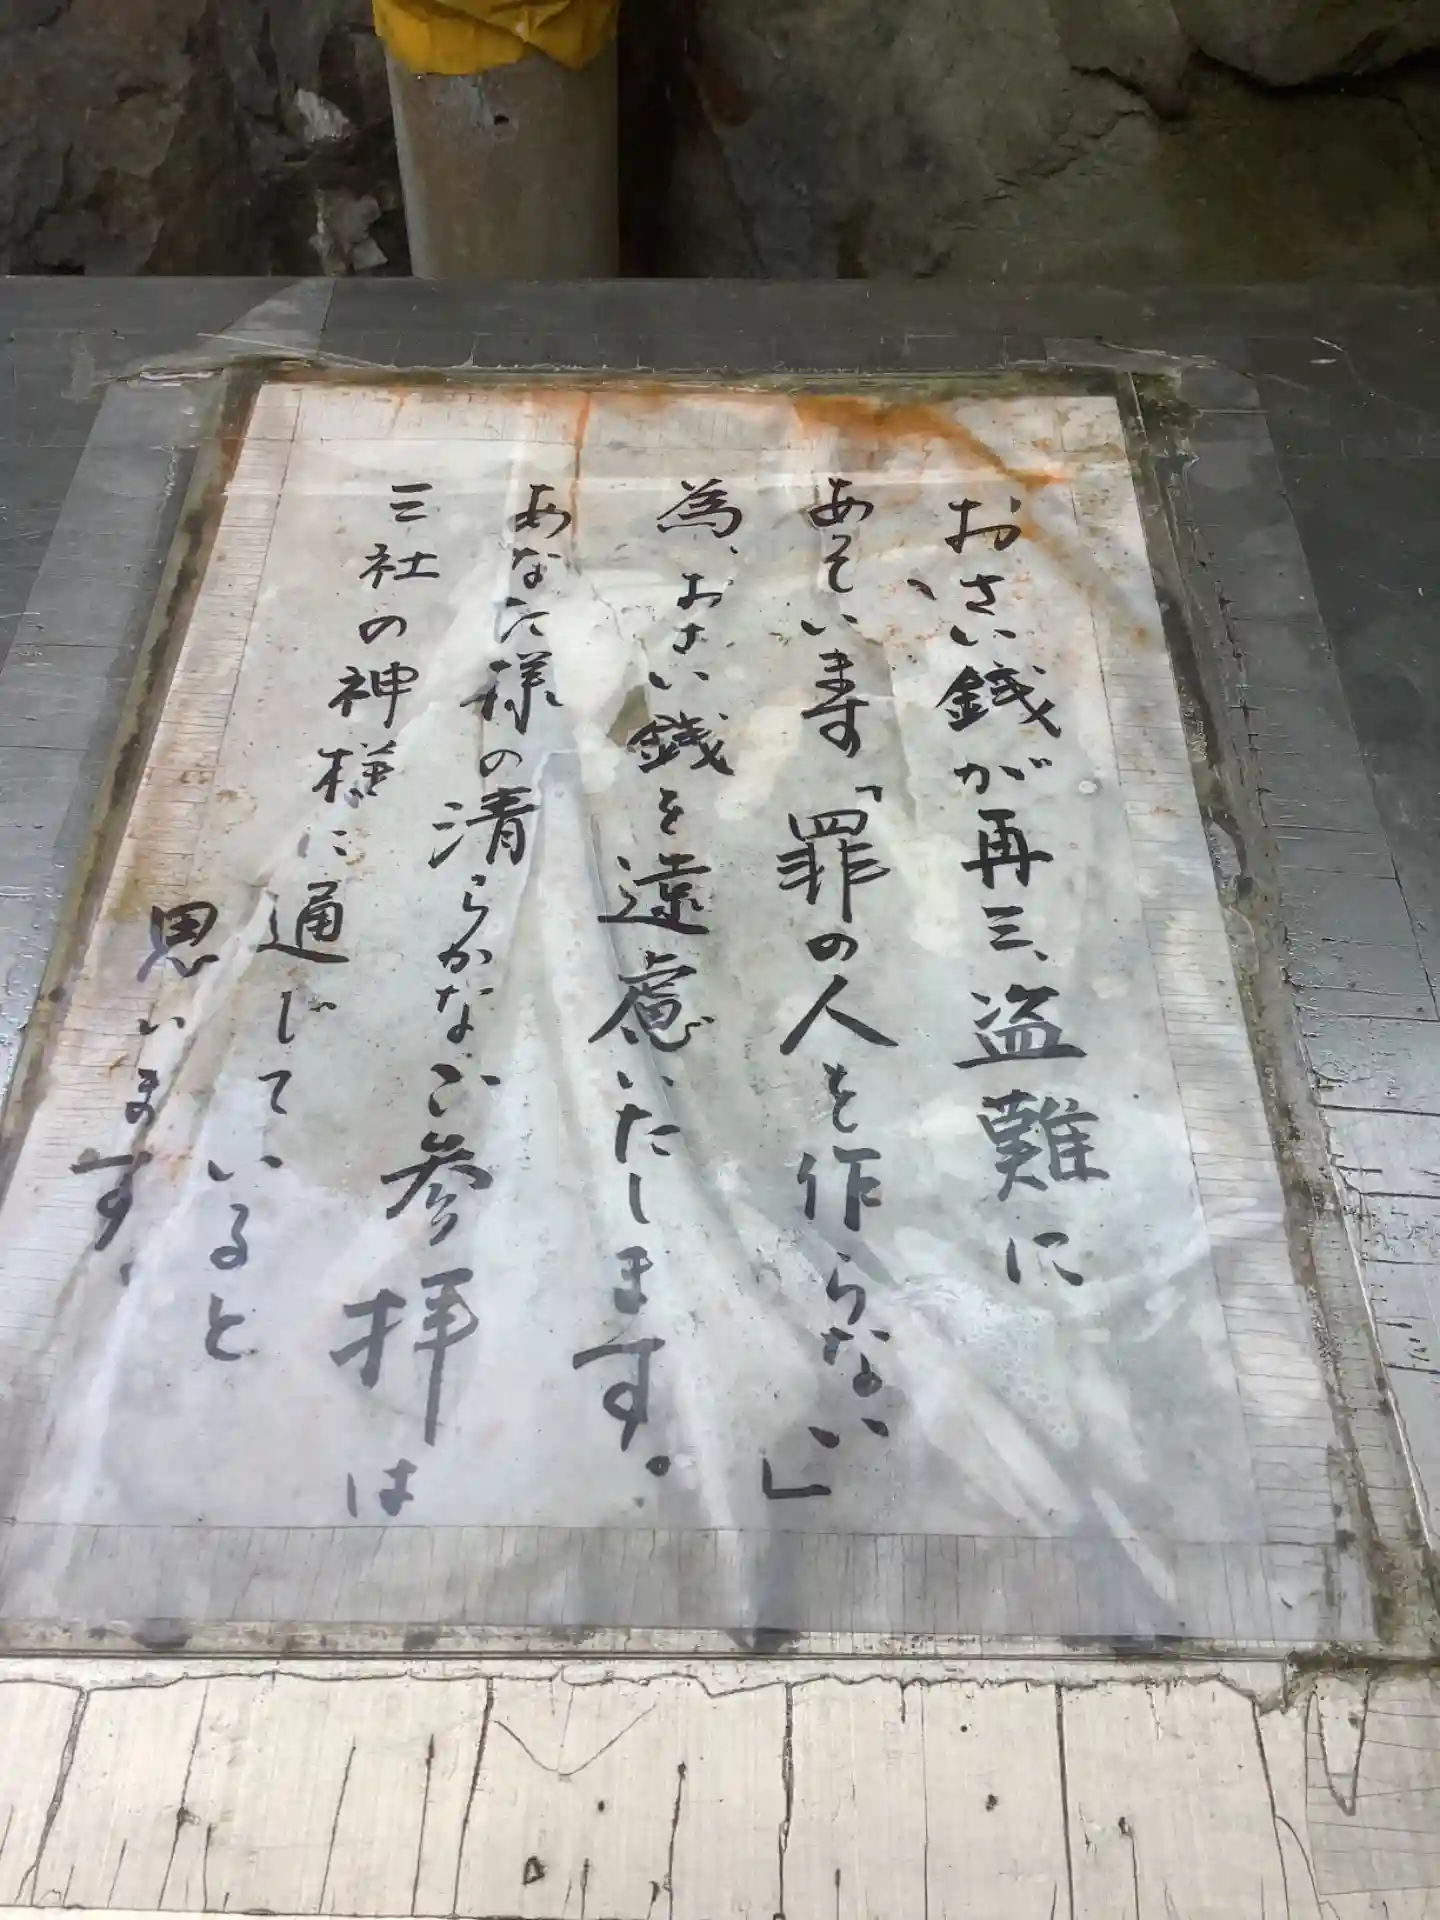 おさい銭が再三、盗難に
あそいます「罪の人を作らない」
為、おさい銭を遠慮いたします。
あなた様の清らかなご参拝は
三社の神様に通じていると
思います。